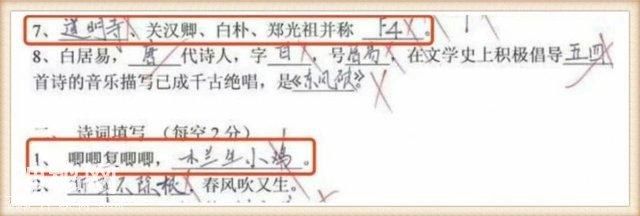 7、道明寺、关汉卿、白朴、郑光祖并称 F4。
8、白居易，唐代诗人，字甘，号居易，在文学史上积极倡导五四
首诗的音乐描写已成千古绝唱，是《东风破》。
二、诗词填写（每空2分）
1、唧唧复唧唧，木兰生小鸡。
2、斩草不除根，春风吹又生。